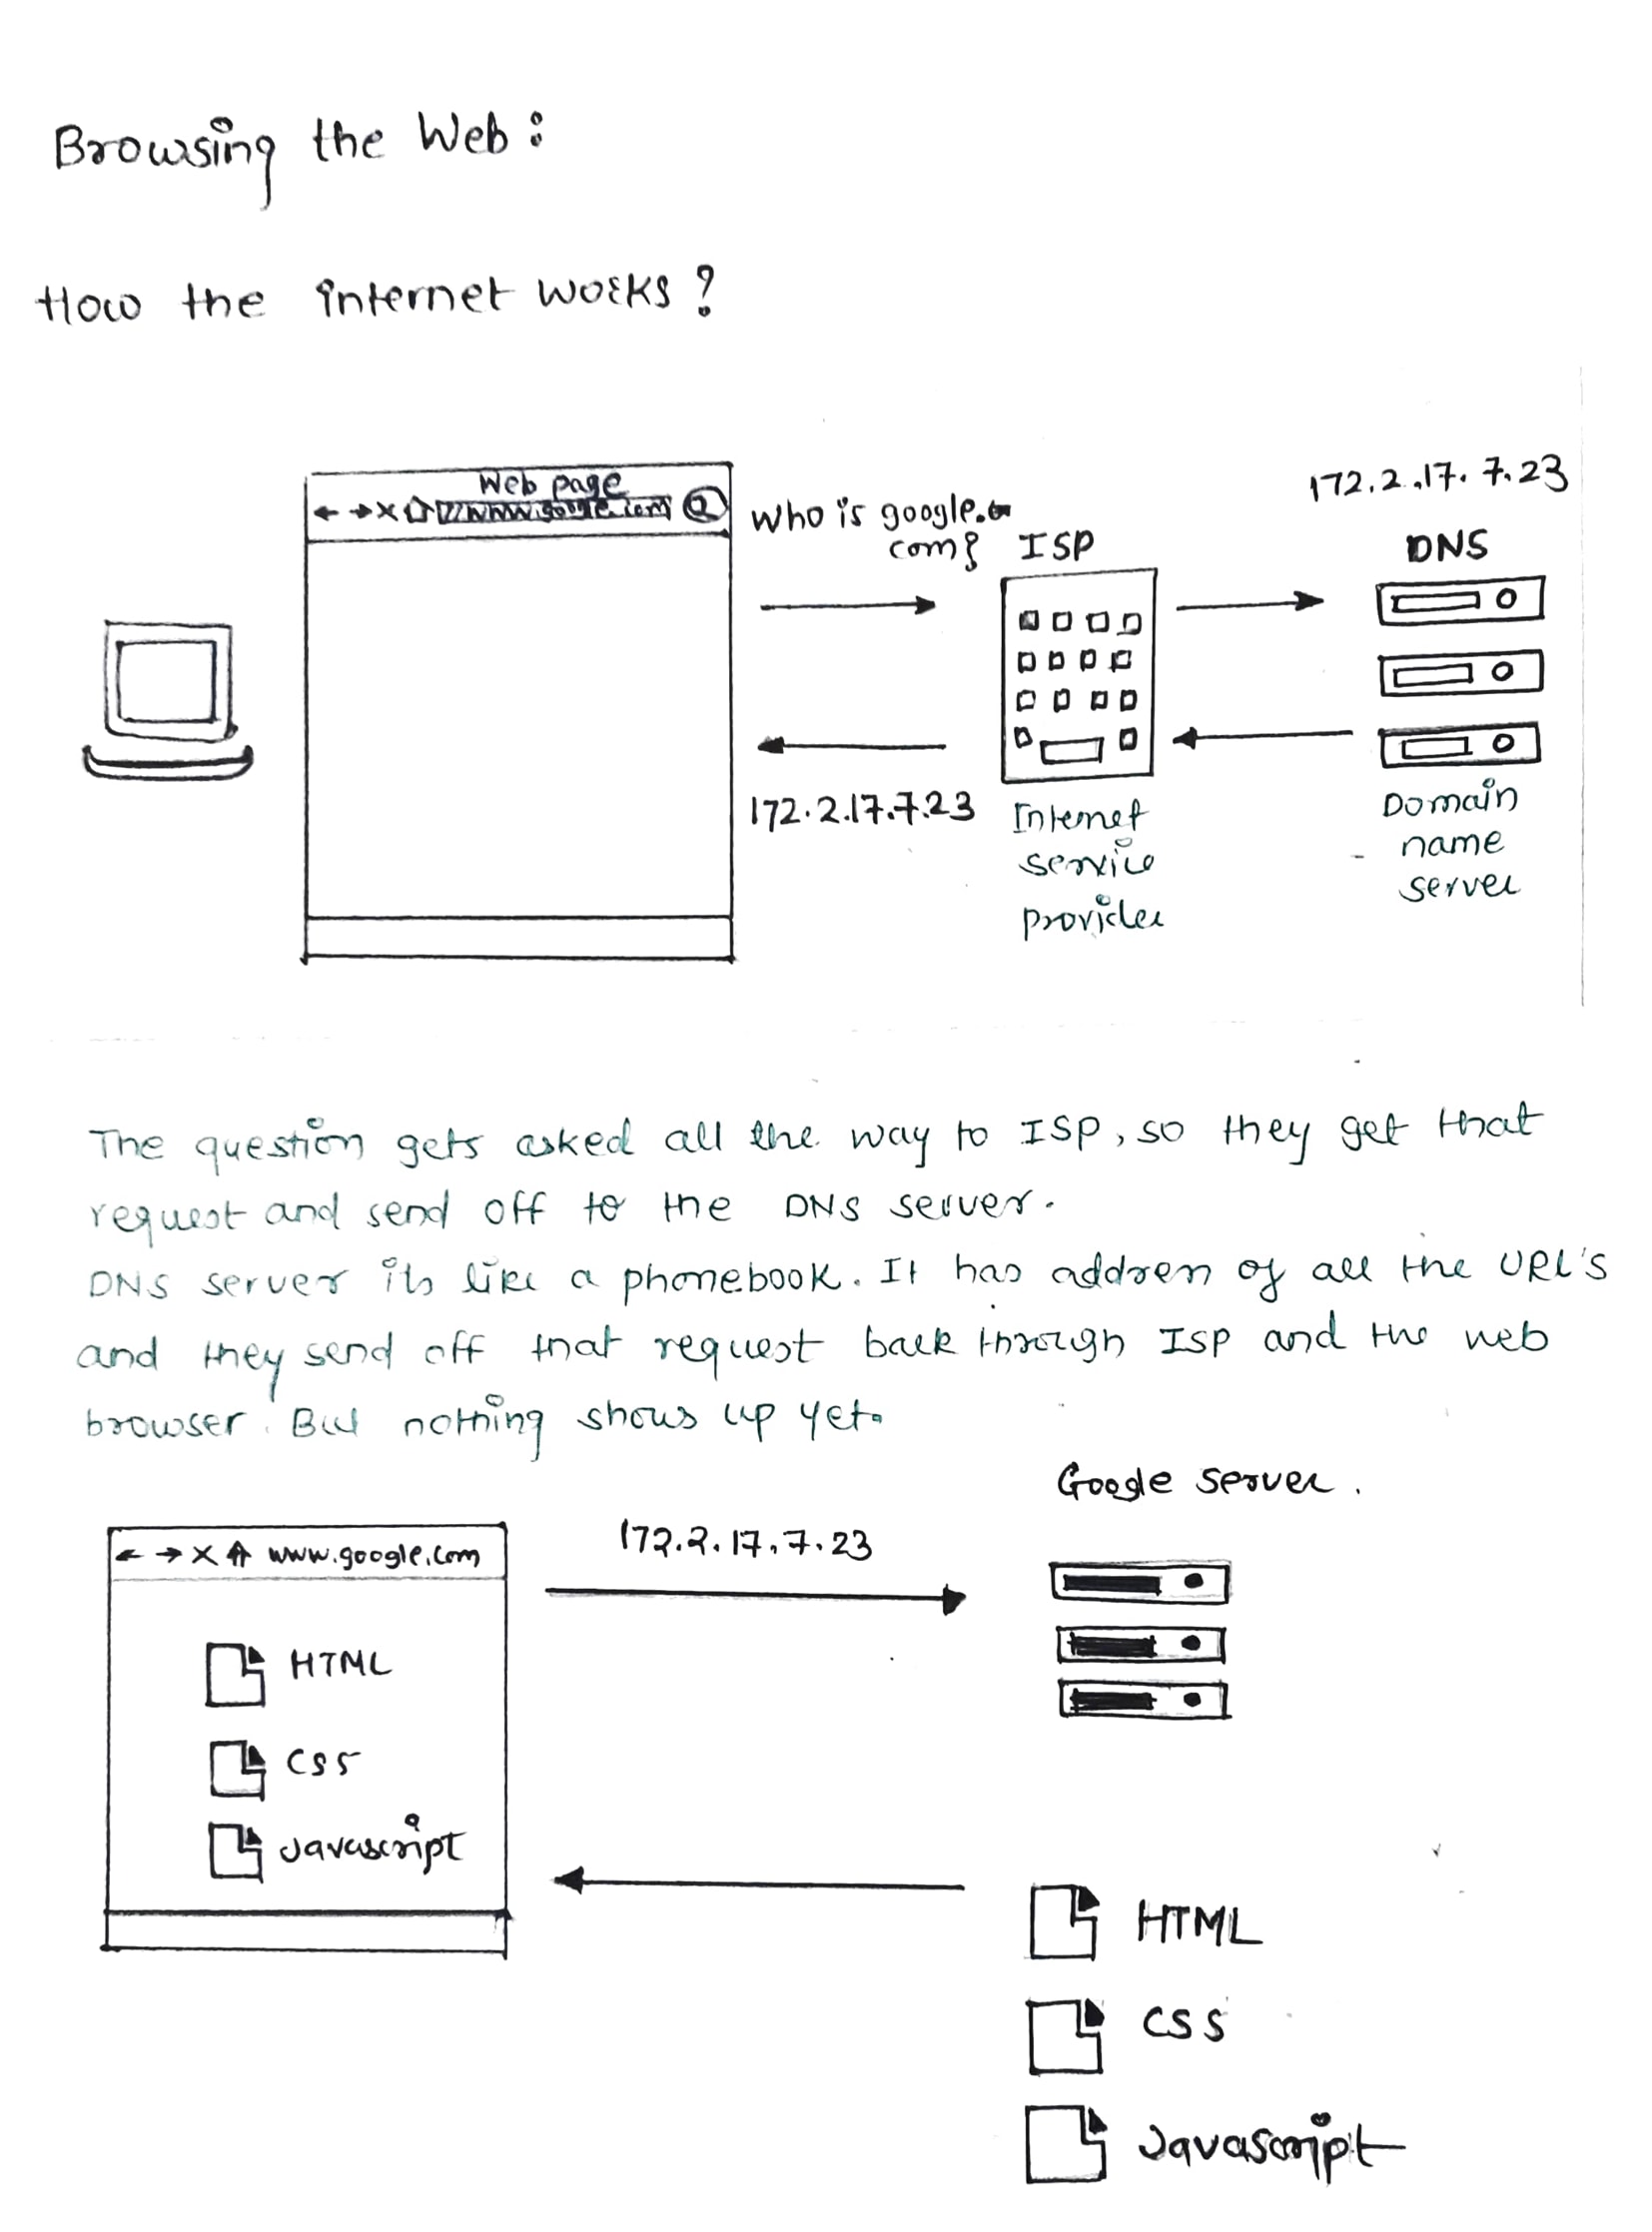 Browsing the Web:
How the internet works?
Web page
www.google.com
Who is google.
com?
ISP
172.2.17.7.23
DNS
172.2.17.7.23
Internet
service
provider
Domain
name
server
The question gets asked all the way to ISP, so they get that
request and send off to the DNS server.
DNS server its like a phonebook. It has address of all the URL's
and they send off that request back through ISP and the web
browser. But nothing shows up yet.
Google server.
www.google.com
172.2.17.7.23
HTML
CSS
Javascript
HTML
CSS
Javascript